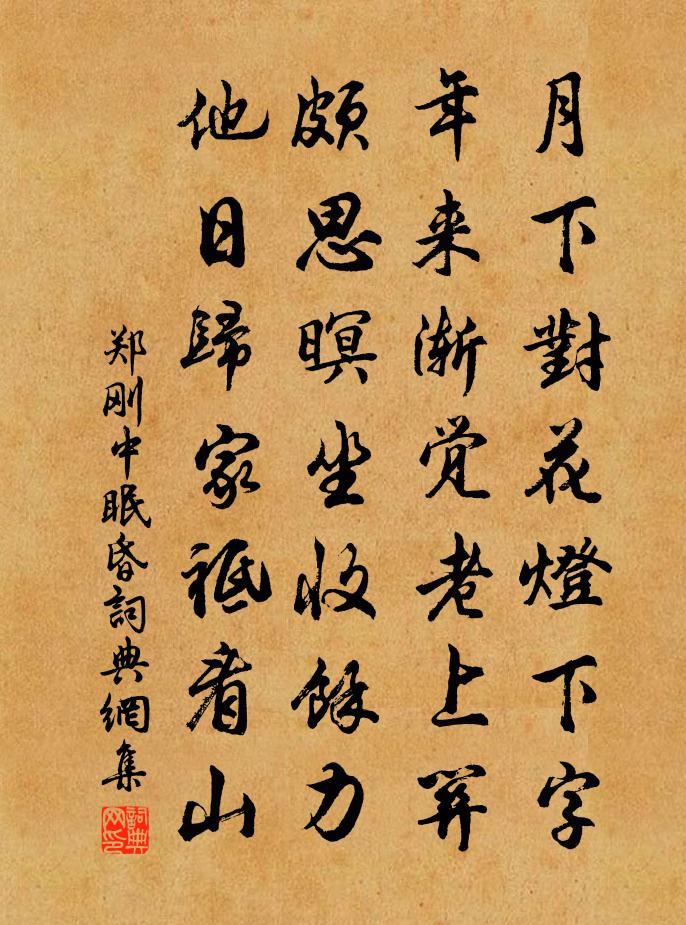 月下對花燈下字
年来渐觉老上关
頗思瞑坐收餘力
他日歸家祗看山
郑刚中眠昏詞典網集
詞典网印